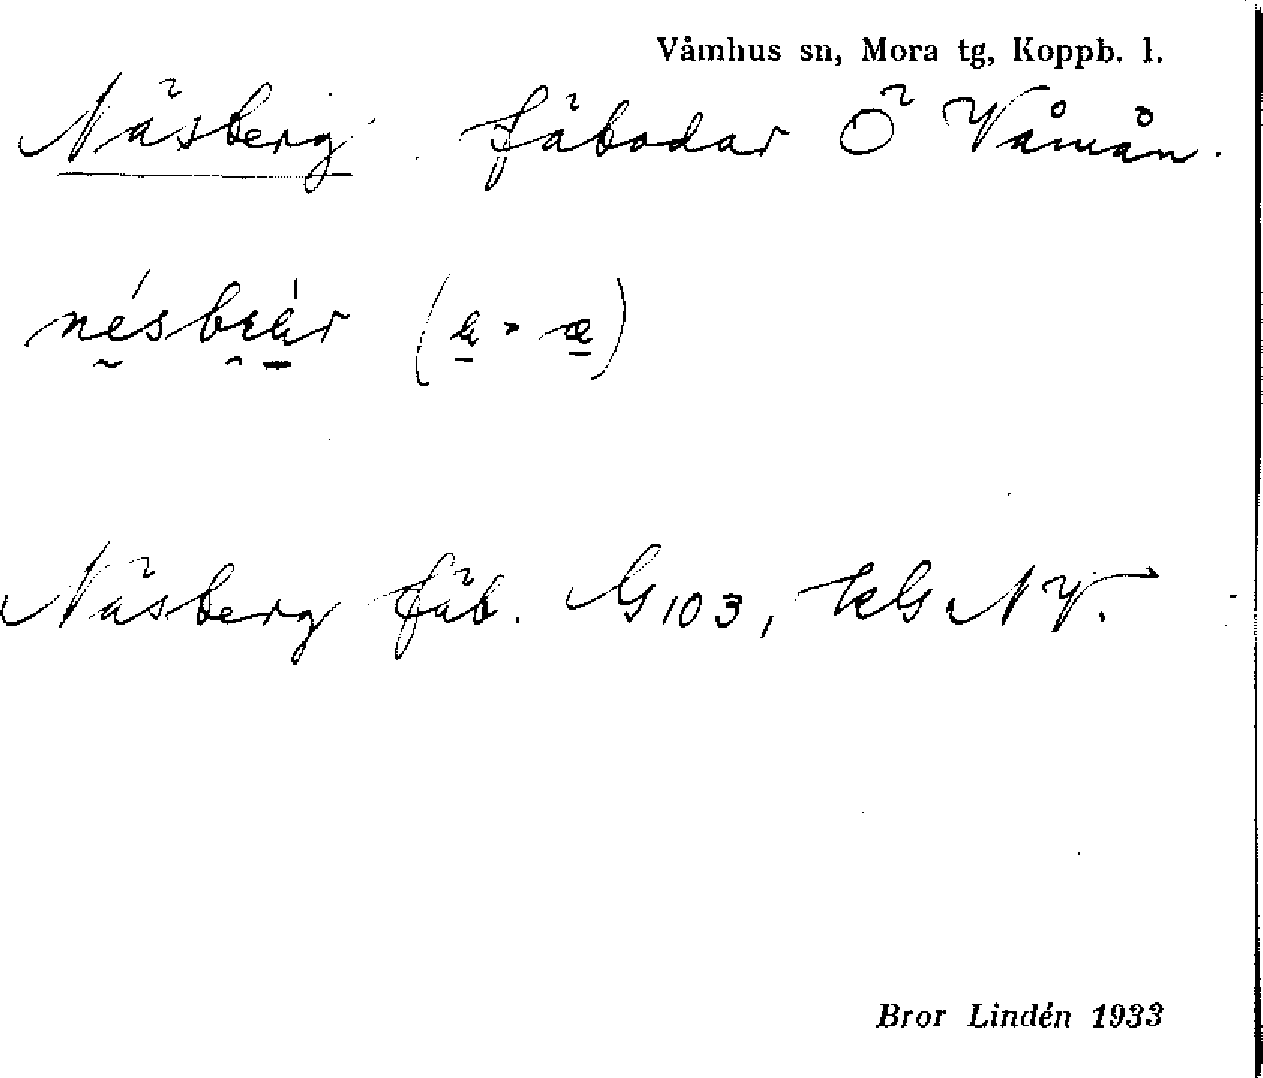 Våmhus sn, Mora tg, Koppb. l.
Näsberg fäbodar Ö Våmån.
Näsberg fäb. G103, kG NV.
Bror Lindén 1933